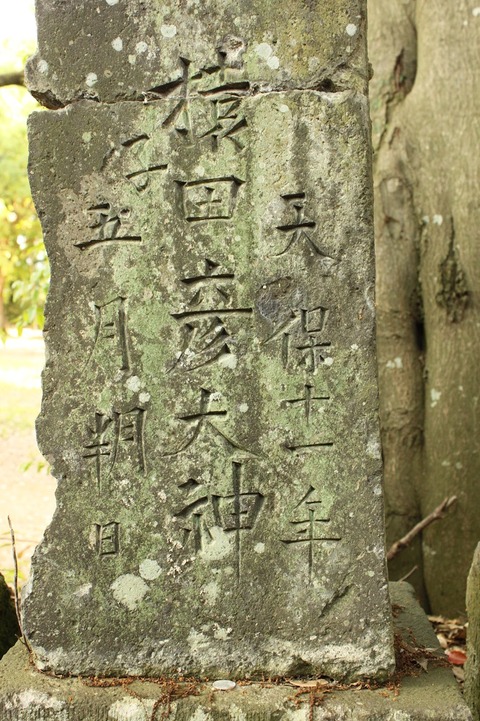 天保十一年
猿田彦大神
子五月朔日